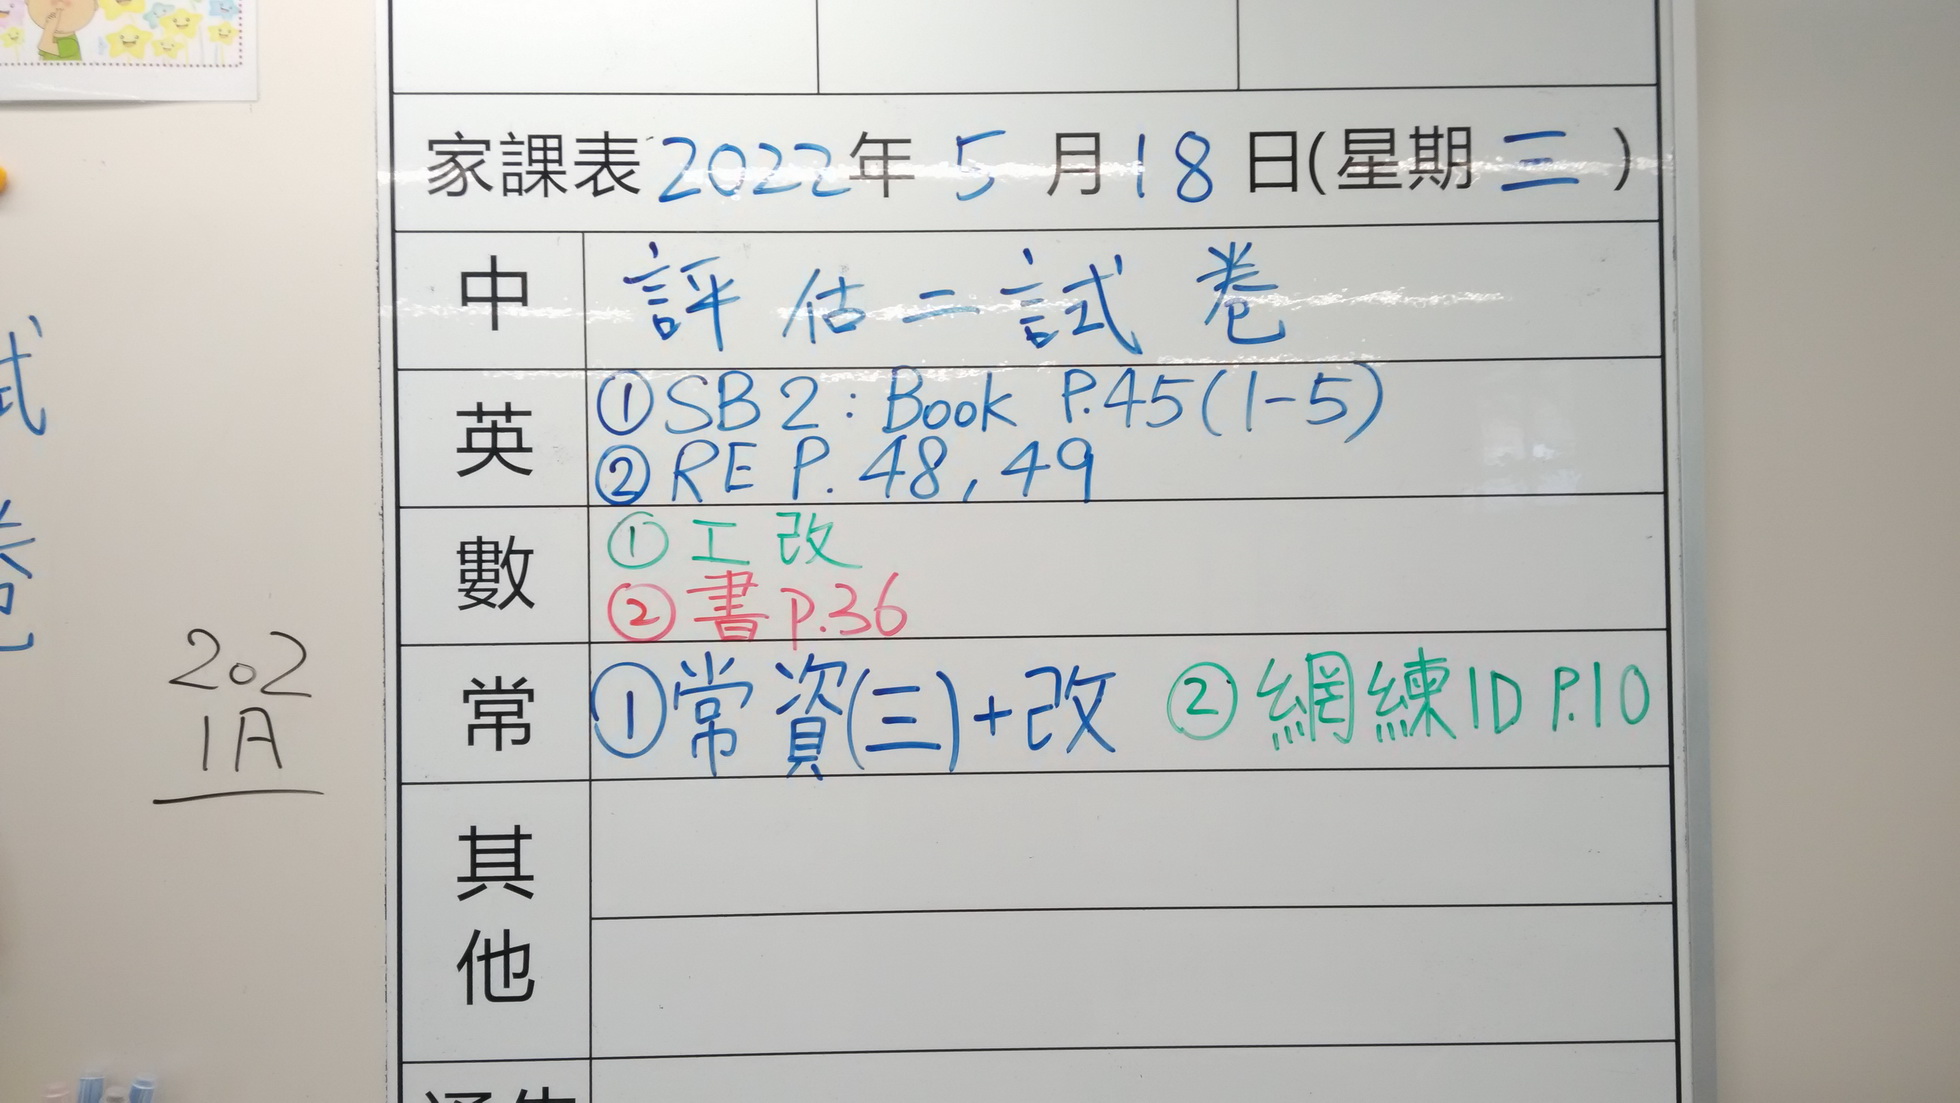 家課表 2022年 5 月 18 日(星期 三 )
中 評估二試卷
英 ①SB2: Book P.45(1-5)
②RE P. 48, 49
數 ①工改
②書P.36
常 ①常資(三)+改 ②網練1D P.10
其他
試卷
202
1A